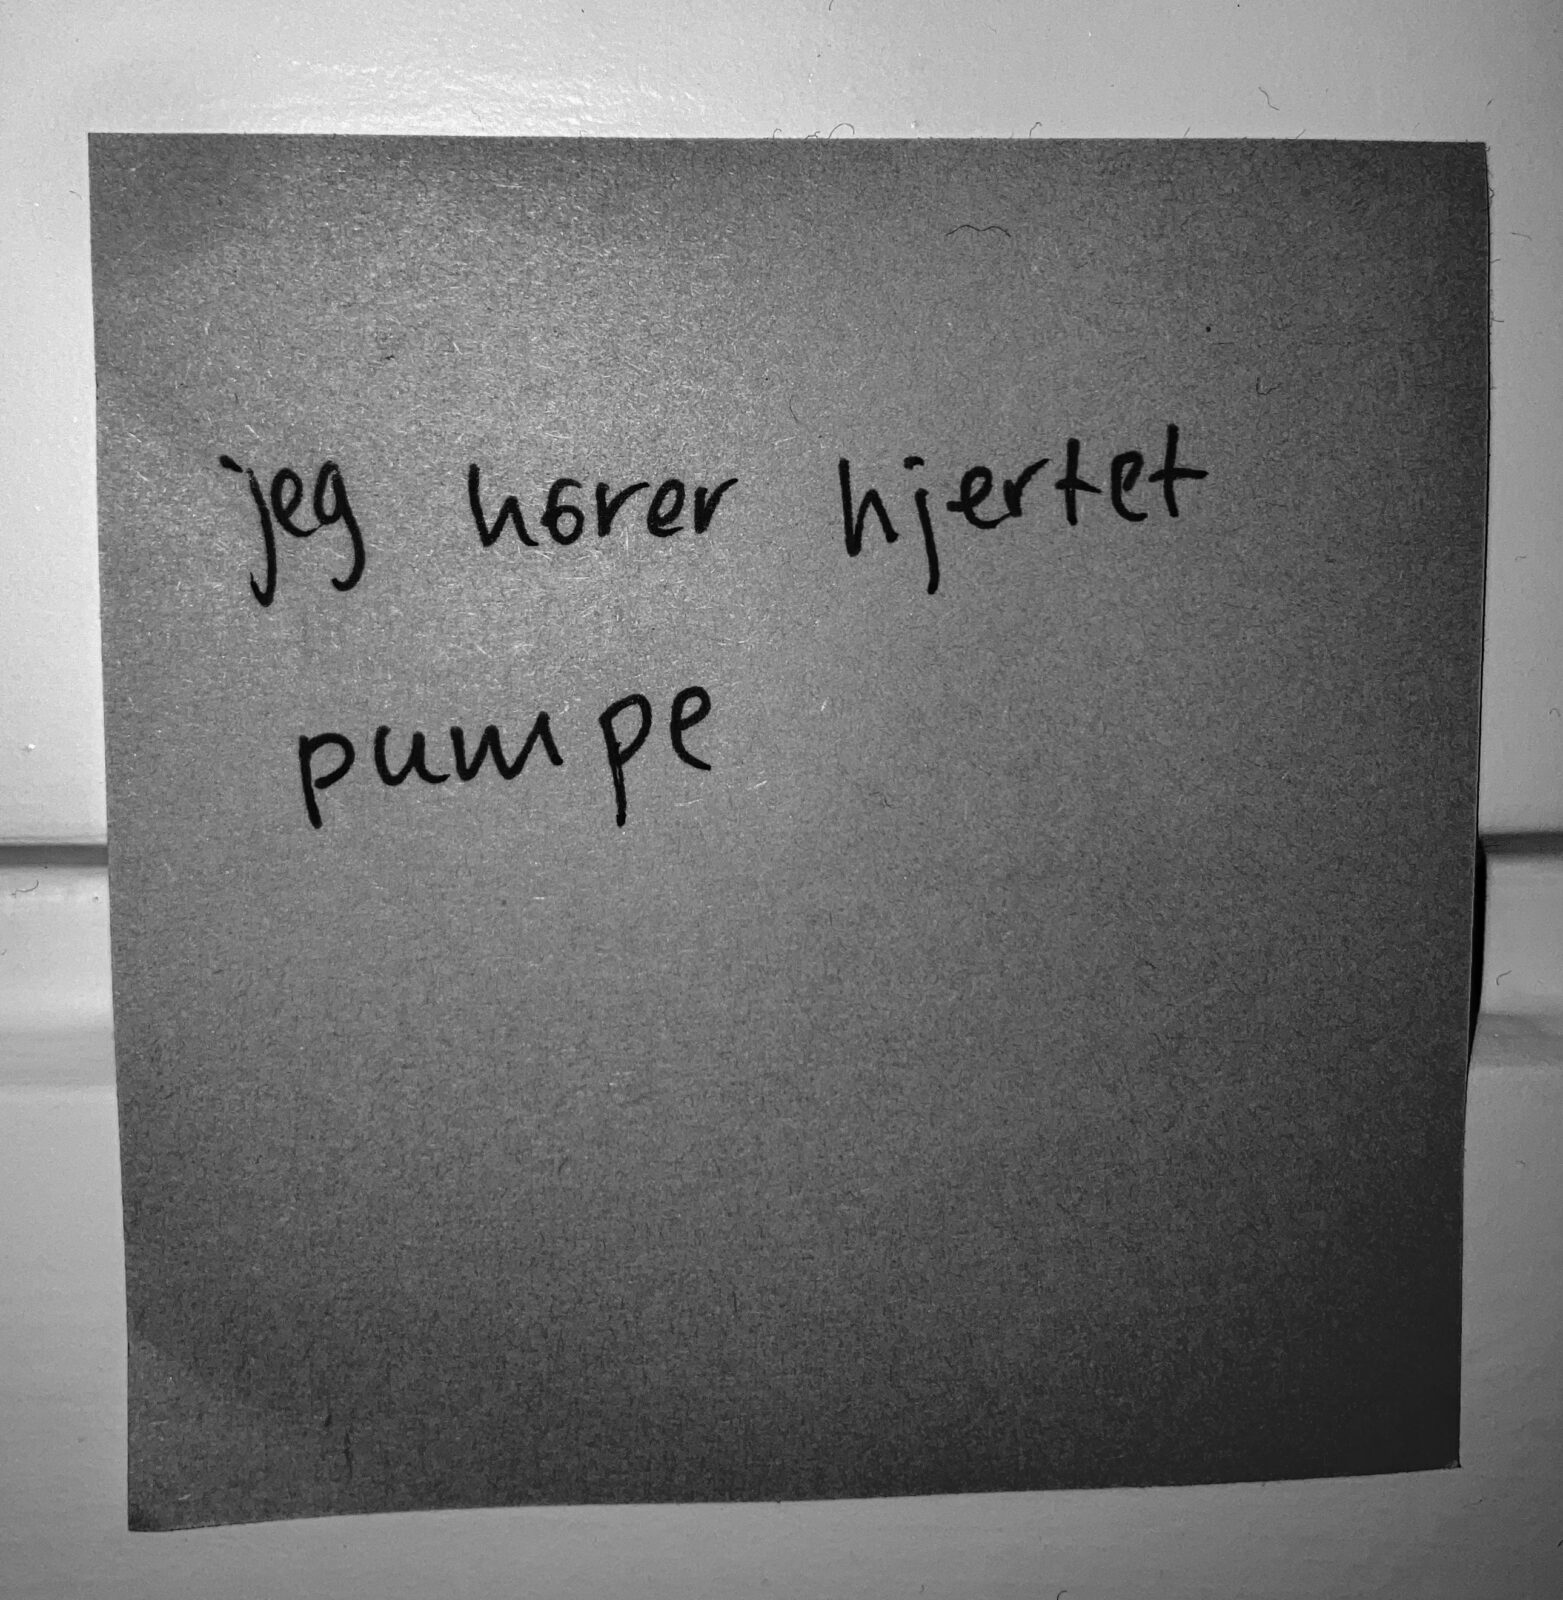 jeg hører hjertet
pumpe